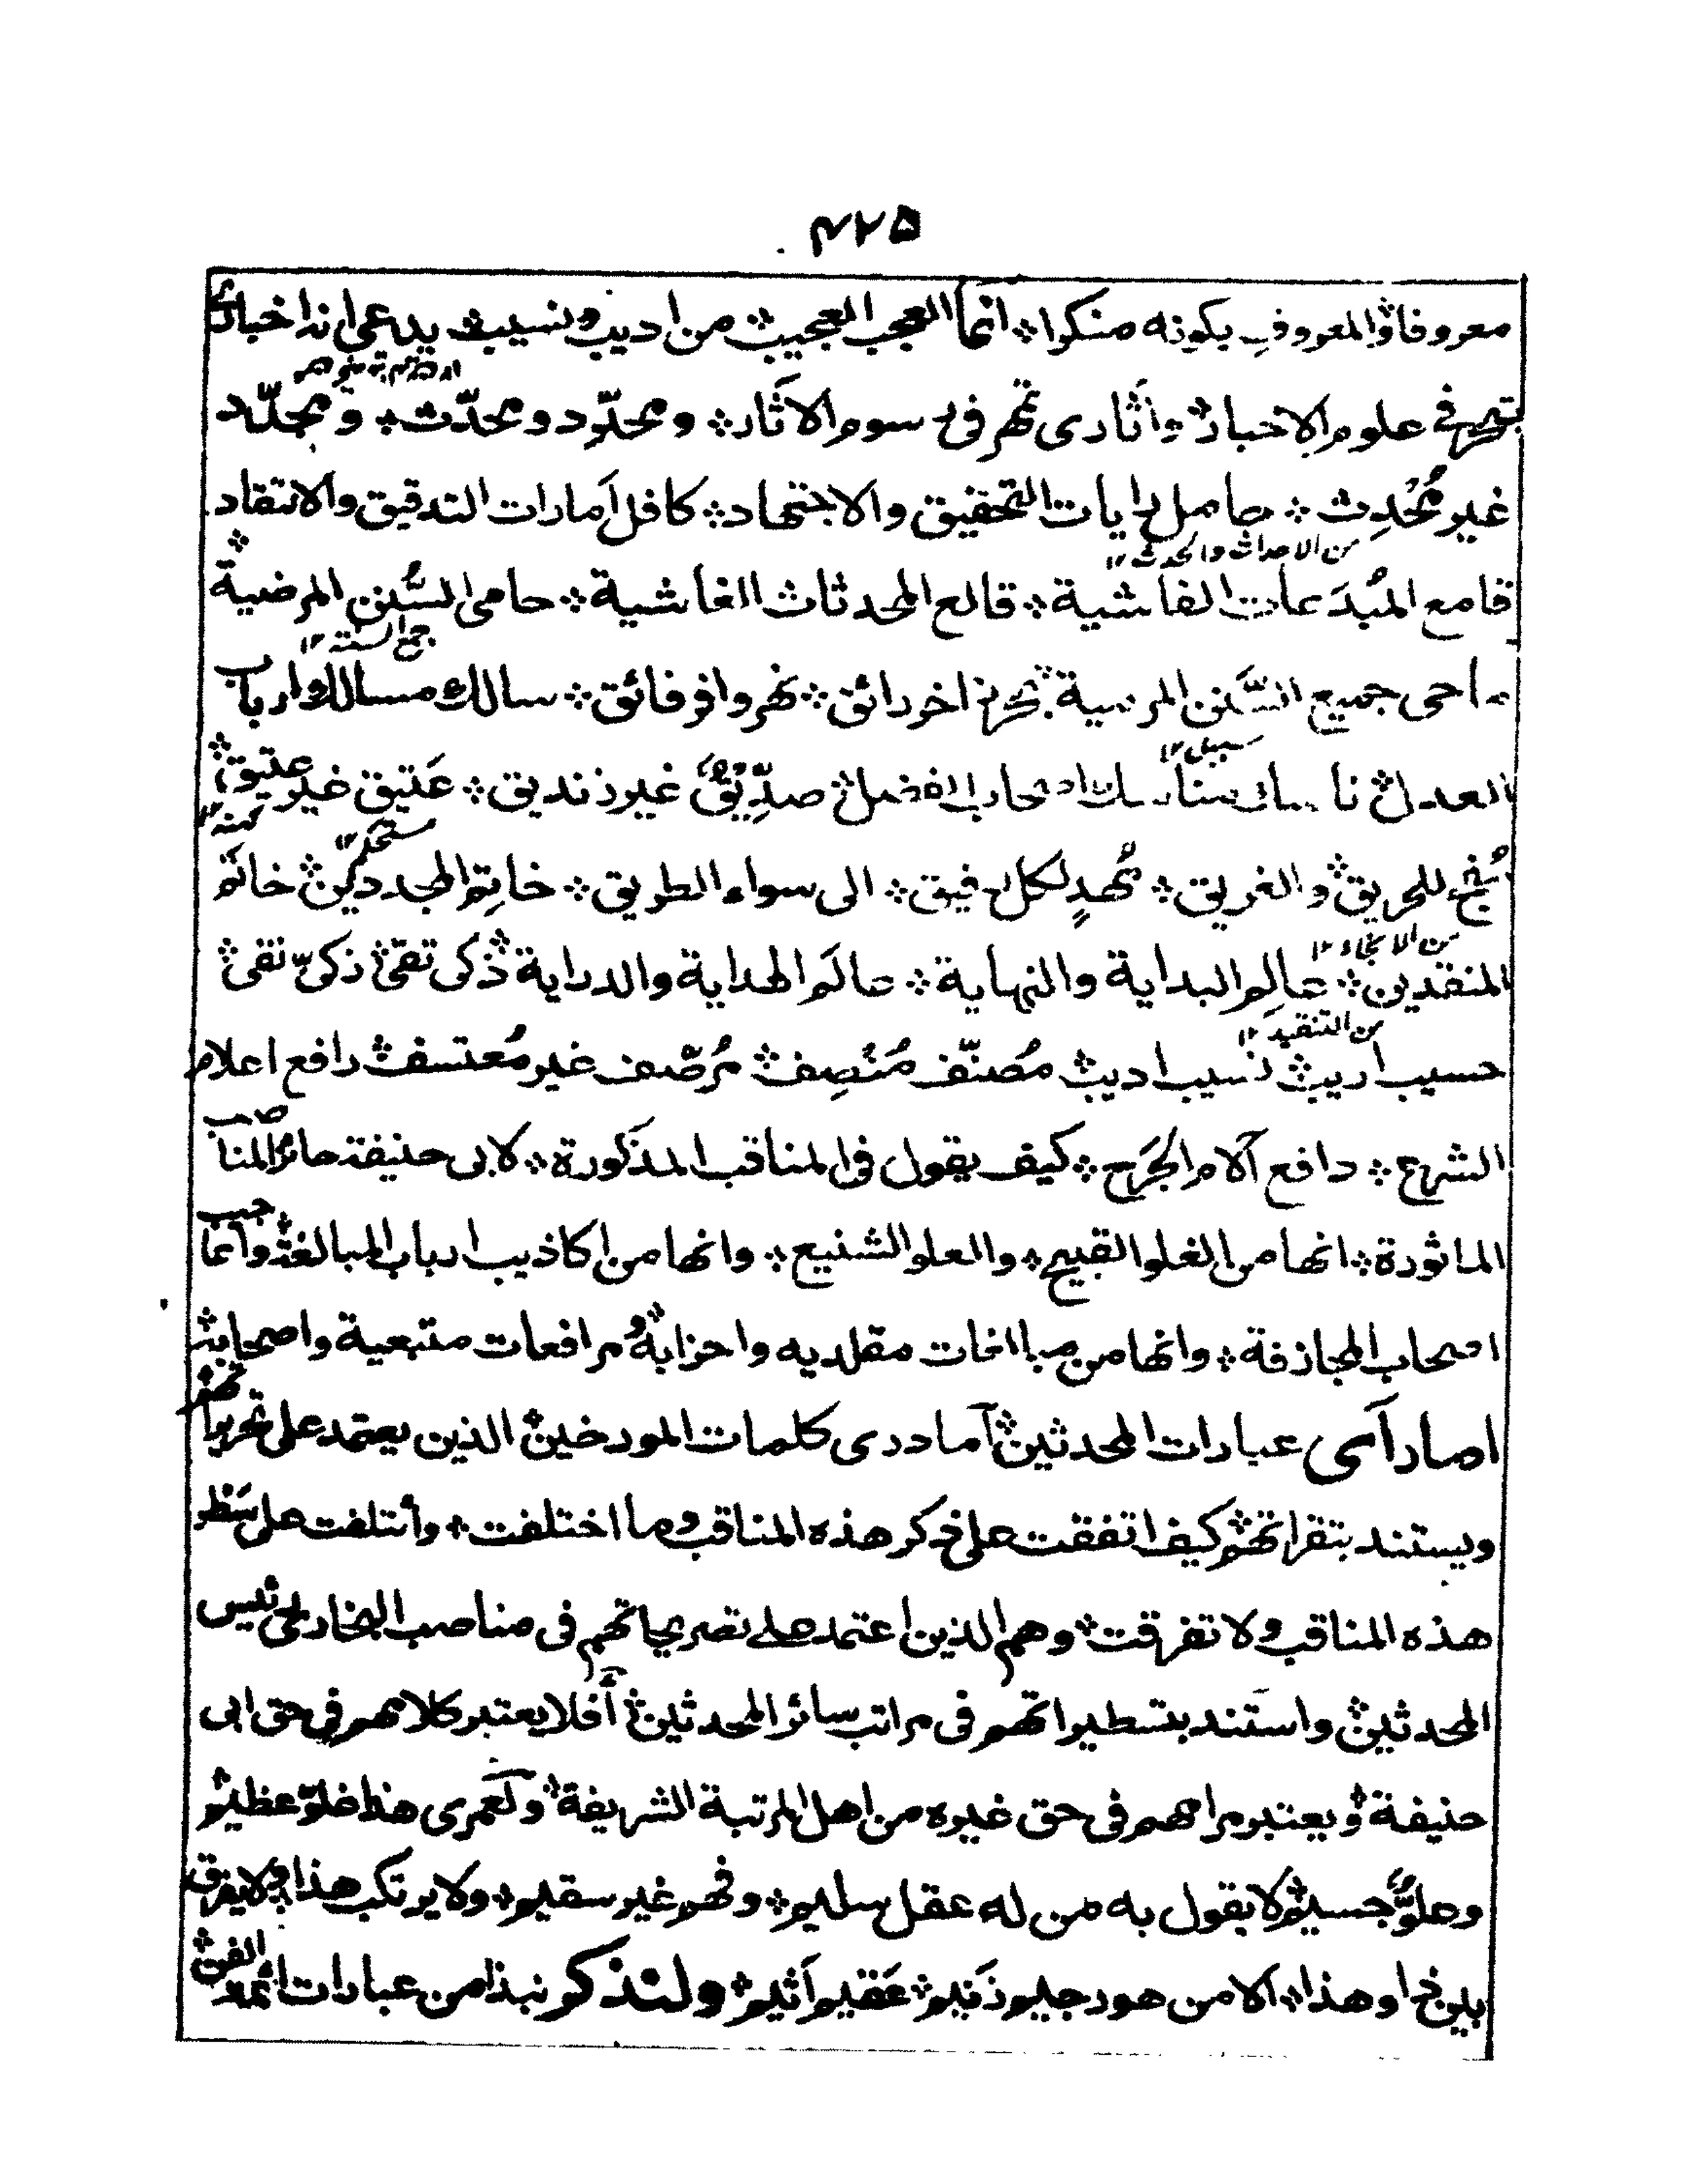 ۴۲۵
معروفا والمعروف بكونه منكرا ؞ انما العجب العجيب ؞ من اديب ونسيب ؞ يدعى انه اخبارى
تبحر فى علوم الاخبار ؞ واثارى تمهر فى رسوم الاثار ؞ ومجدِّد ومحدّث ؞ ومجدَّد
غير مُحْدِث ؞ حامل رايات التحقيق والاجتهاد ؞ كافل أمارات التدقيق والانتقاد ؞
من الاحداث والحدث ١٢
قامع المُبدَعات الفاشية ؞ قالع المحدثات الغاشية ؞ حامى السُّنن المرضية
جمع السنة ١٢
ماحى جميع السَّنن المرضية ؞ بحر زاخر رائق ؞ نهر وافر فائق ؞ سالك مسالك ارباب
سبيل ١٢
العدل ؞ ناسك مناسك اصحاب الفضل ؞ صدِّيقٌ غير زنديق ؞ عَتيق غير عتيق ؞
مُنْجٍ للحريق والغريق ؞ مُهدٍ لكل رفيق ؞ الى سواء الطريق ؞ خاتِم المجددين ؞ خاتَم
من الانجاء ١٢
المنقدين ؞ عالِم البداية والنهاية ؞ عالَم الهداية والدراية ؞ ذكى تقى ؞ زكىّ نقى ؞
من التنقيد ١٢
حسيب اريب ؞ نسيب اديب ؞ مُصنّف مُنْصِف ؞ مُرصّف غير مُعتسف ؞ رافع اعلام
الشرع ؞ دافع آلام الجَرح ؞ كيف يقول فى المناقب المذكورة ؞ لابى حنيفة حائز المناصب
الماثورة ؞ انها من الغلو القبيح ؞ والعلو الشنيع ؞ وانها من اكاذيب ارباب المبالغة ؞ واعاجيب
اصحاب المجازفة ؞ وانها من مبالغات مقلديه واحزابه ؞ ومرافعات متبعيه واصحابه ؞
اما رأى عبارات المحدثين ؞ أما درى كلمات المورخين ؞ الذين يعتمد على تحريراتهم
ويستند بتقراتهم ؞ كيف اتفقت على ذكر هذه المناقب وما اختلفت ؞ وأتلفت على سَطْر
هذه المناقب ولا تفرقت ؞ وهم الذين اعتمد على تصريحاتهم فى مناصب البخارى رئيس
المحدثين ؞ واستند بتسطيراتهم فى مراتب سائر المحدثين ؞ أفلا يعتبر كلامهم فى حق ابى
حنيفة ؞ ويعتبر مرامهم فى حق غيره من اهل المرتبة الشريفة ؞ ولَعمرى هذا غلوّ عظيم ؞
وعلوٌّ جسيم ؞ لا يقول به من له عقل سليم ؞ وفهم غير سقيم ؞ ولا يرتكب هذا ؞ ولا يفرق
بين ذا وهذا ؞ الا من هو رجيم زنيم ؞ عقيم أثيم ؞ ولنذكر نبذا من عبارات ائمة الفن ؞